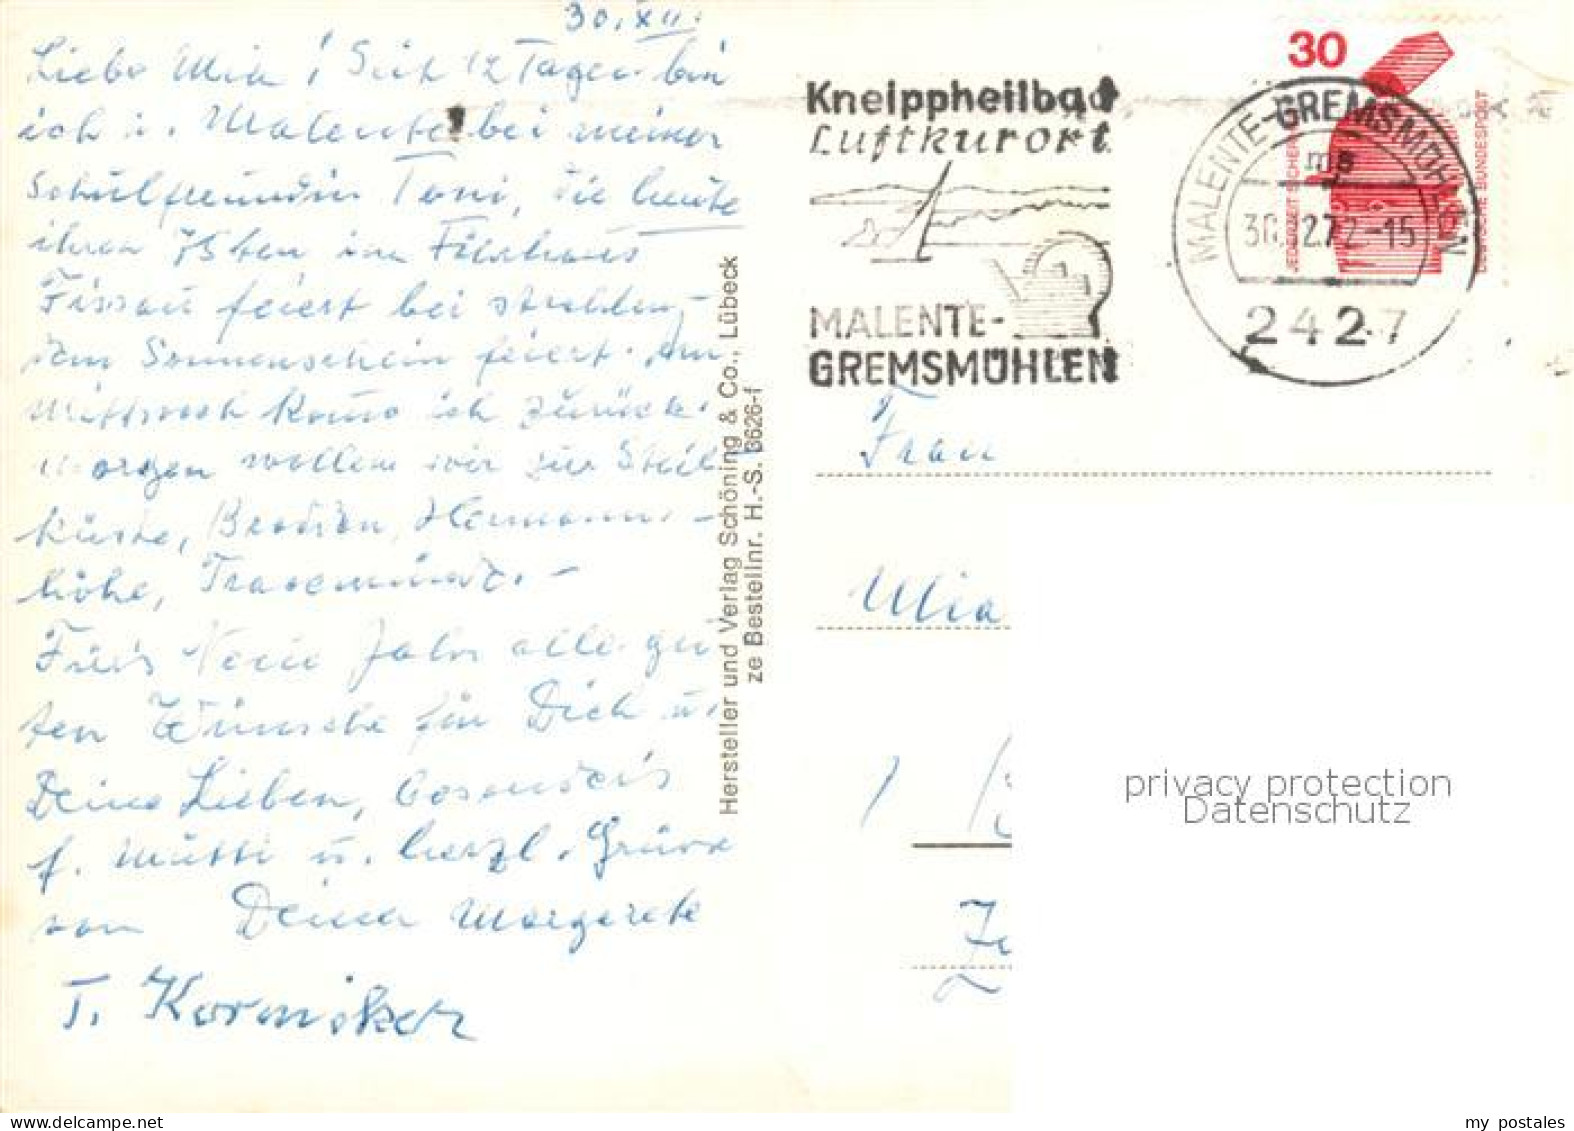 30. XII.
Liebe Mia! Seit 12 Tagen bin
ich i. Malente bei meiner
Schulfreundin Toni, die heute
ihren 75ten im
Fissau feiert bei strahlen-
dem Sonnenschein feiert. Am
Mittwoch komme ich zurück.
Morgen wollen wir zur Steil
küste, Brodten, Hermanns-
höhe, Travemünde. -
Für's Neue Jahr alle gu
ten Wünsche für Dich u.
Deine Lieben, besonders
f. Mutti u. herzl. Grüsse
von Deiner Margarete
T. Kormiker
Hersteller und Verlag Schöning & Co., Lübeck
ze Bestellnr. H.-S. 3626-f
Kneippheilbad
Luftkurort
MALENTE-
GREMSMÜHLEN
MALENTE-GREMSMÜHLEN
ma
30.12.72-15
2427
30
JEDERZEIT SICHERHEIT
DEUTSCHE BUNDESPOST
Frau
Mia
privacy protection
Datenschutz
my postales